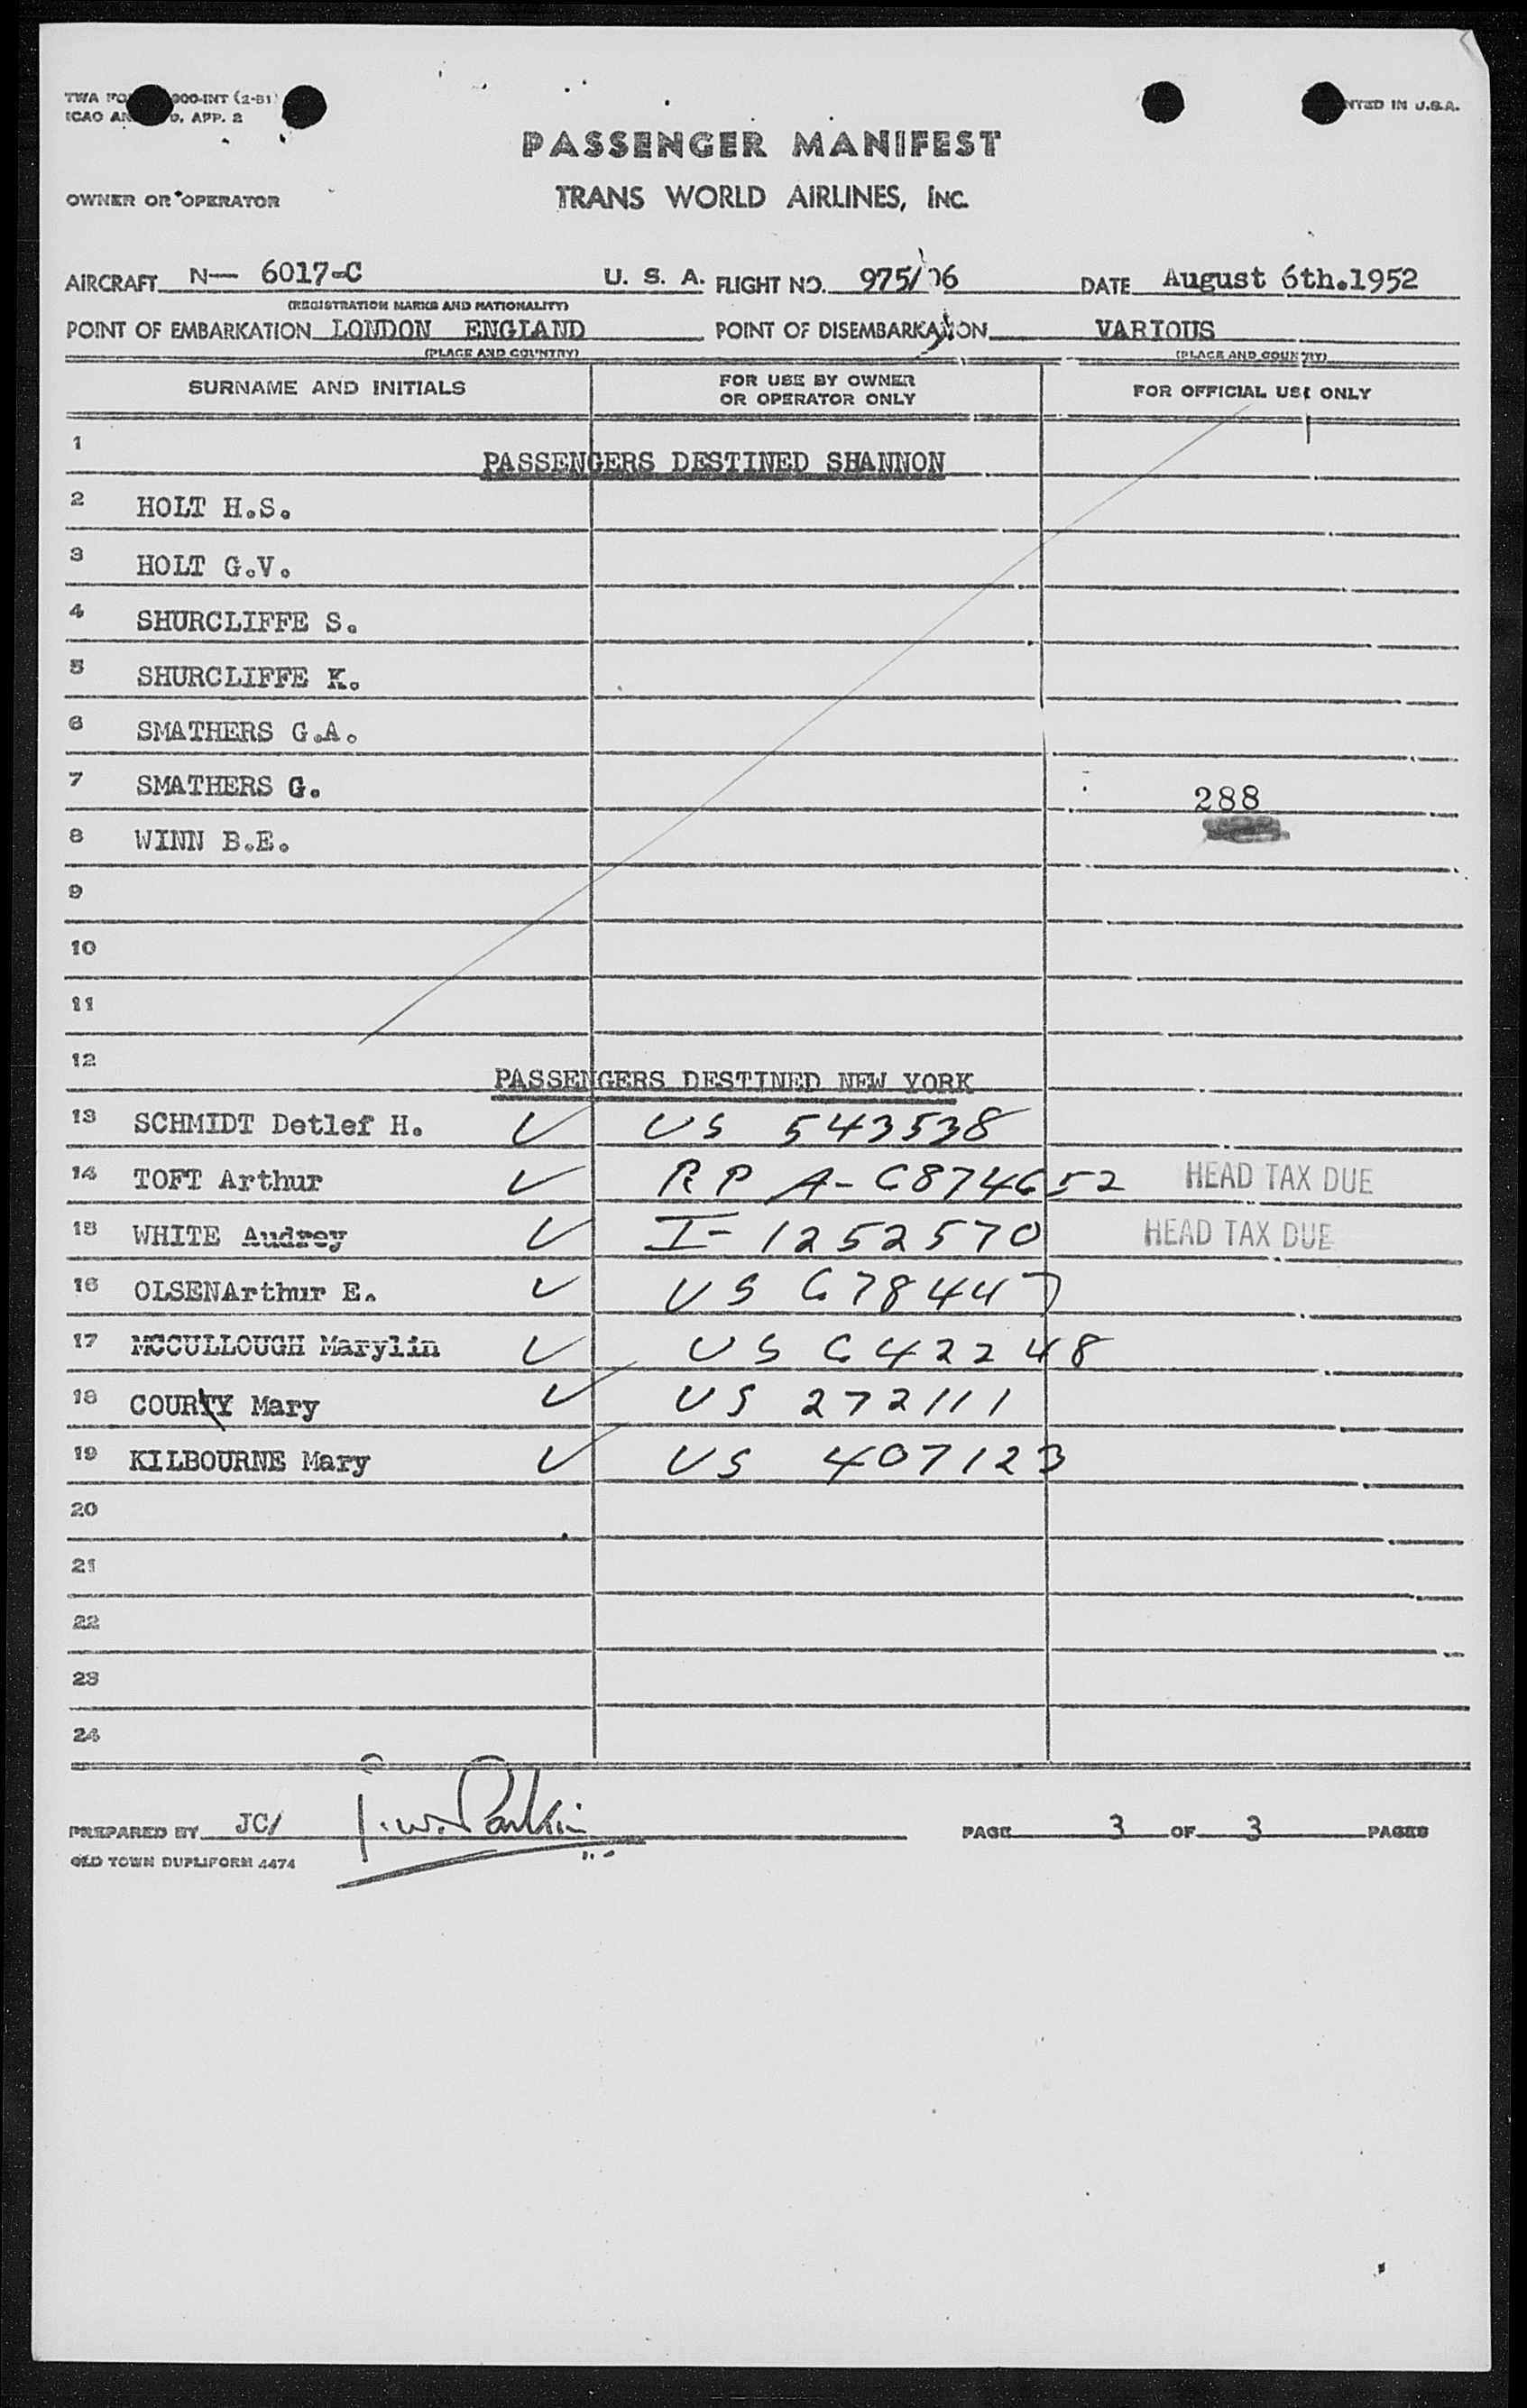 TWA FO 900-INT (2-51)
ICAO AN 9, APP. 2
NTED IN U.S.A.
PASSENGER MANIFEST
OWNER OR OPERATOR
TRANS WORLD AIRLINES, INC.
AIRCRAFT N— 6017-C U. S. A. FLIGHT NO. 975/ 06 DATE August 6th.1952
(REGISTRATION MARKS AND NATIONALITY)
POINT OF EMBARKATION LONDON ENGLAND POINT OF DISEMBARKATION VARIOUS
(PLACE AND COUNTRY) (PLACE AND COUNTRY)
SURNAME AND INITIALS FOR USE BY OWNER OR OPERATOR ONLY FOR OFFICIAL USE ONLY
1 PASSENGERS DESTINED SHANNON
2 HOLT H.S.
3 HOLT G.V.
4 SHURCLIFFE S.
5 SHURCLIFFE K.
6 SMATHERS G.A.
7 SMATHERS G. 288
8 WINN B.E.
9
10
11
12 PASSENGERS DESTINED NEW YORK
13 SCHMIDT Detlef H. ✓ US 543538
14 TOFT Arthur ✓ RP A-6874652 HEAD TAX DUE
15 WHITE Audrey ✓ I-1252570 HEAD TAX DUE
16 OLSENArthur E. ✓ US 678447
17 MCCULLOUGH Marylin ✓ US 642248
18 COURTY Mary ✓ US 272111
19 KILBOURNE Mary ✓ US 407123
20
21
22
23
24
PREPARED BY JC/ J.W. Parkin PAGE 3 OF 3 PAGES
OLD TOWN DUPLIFORM 4474